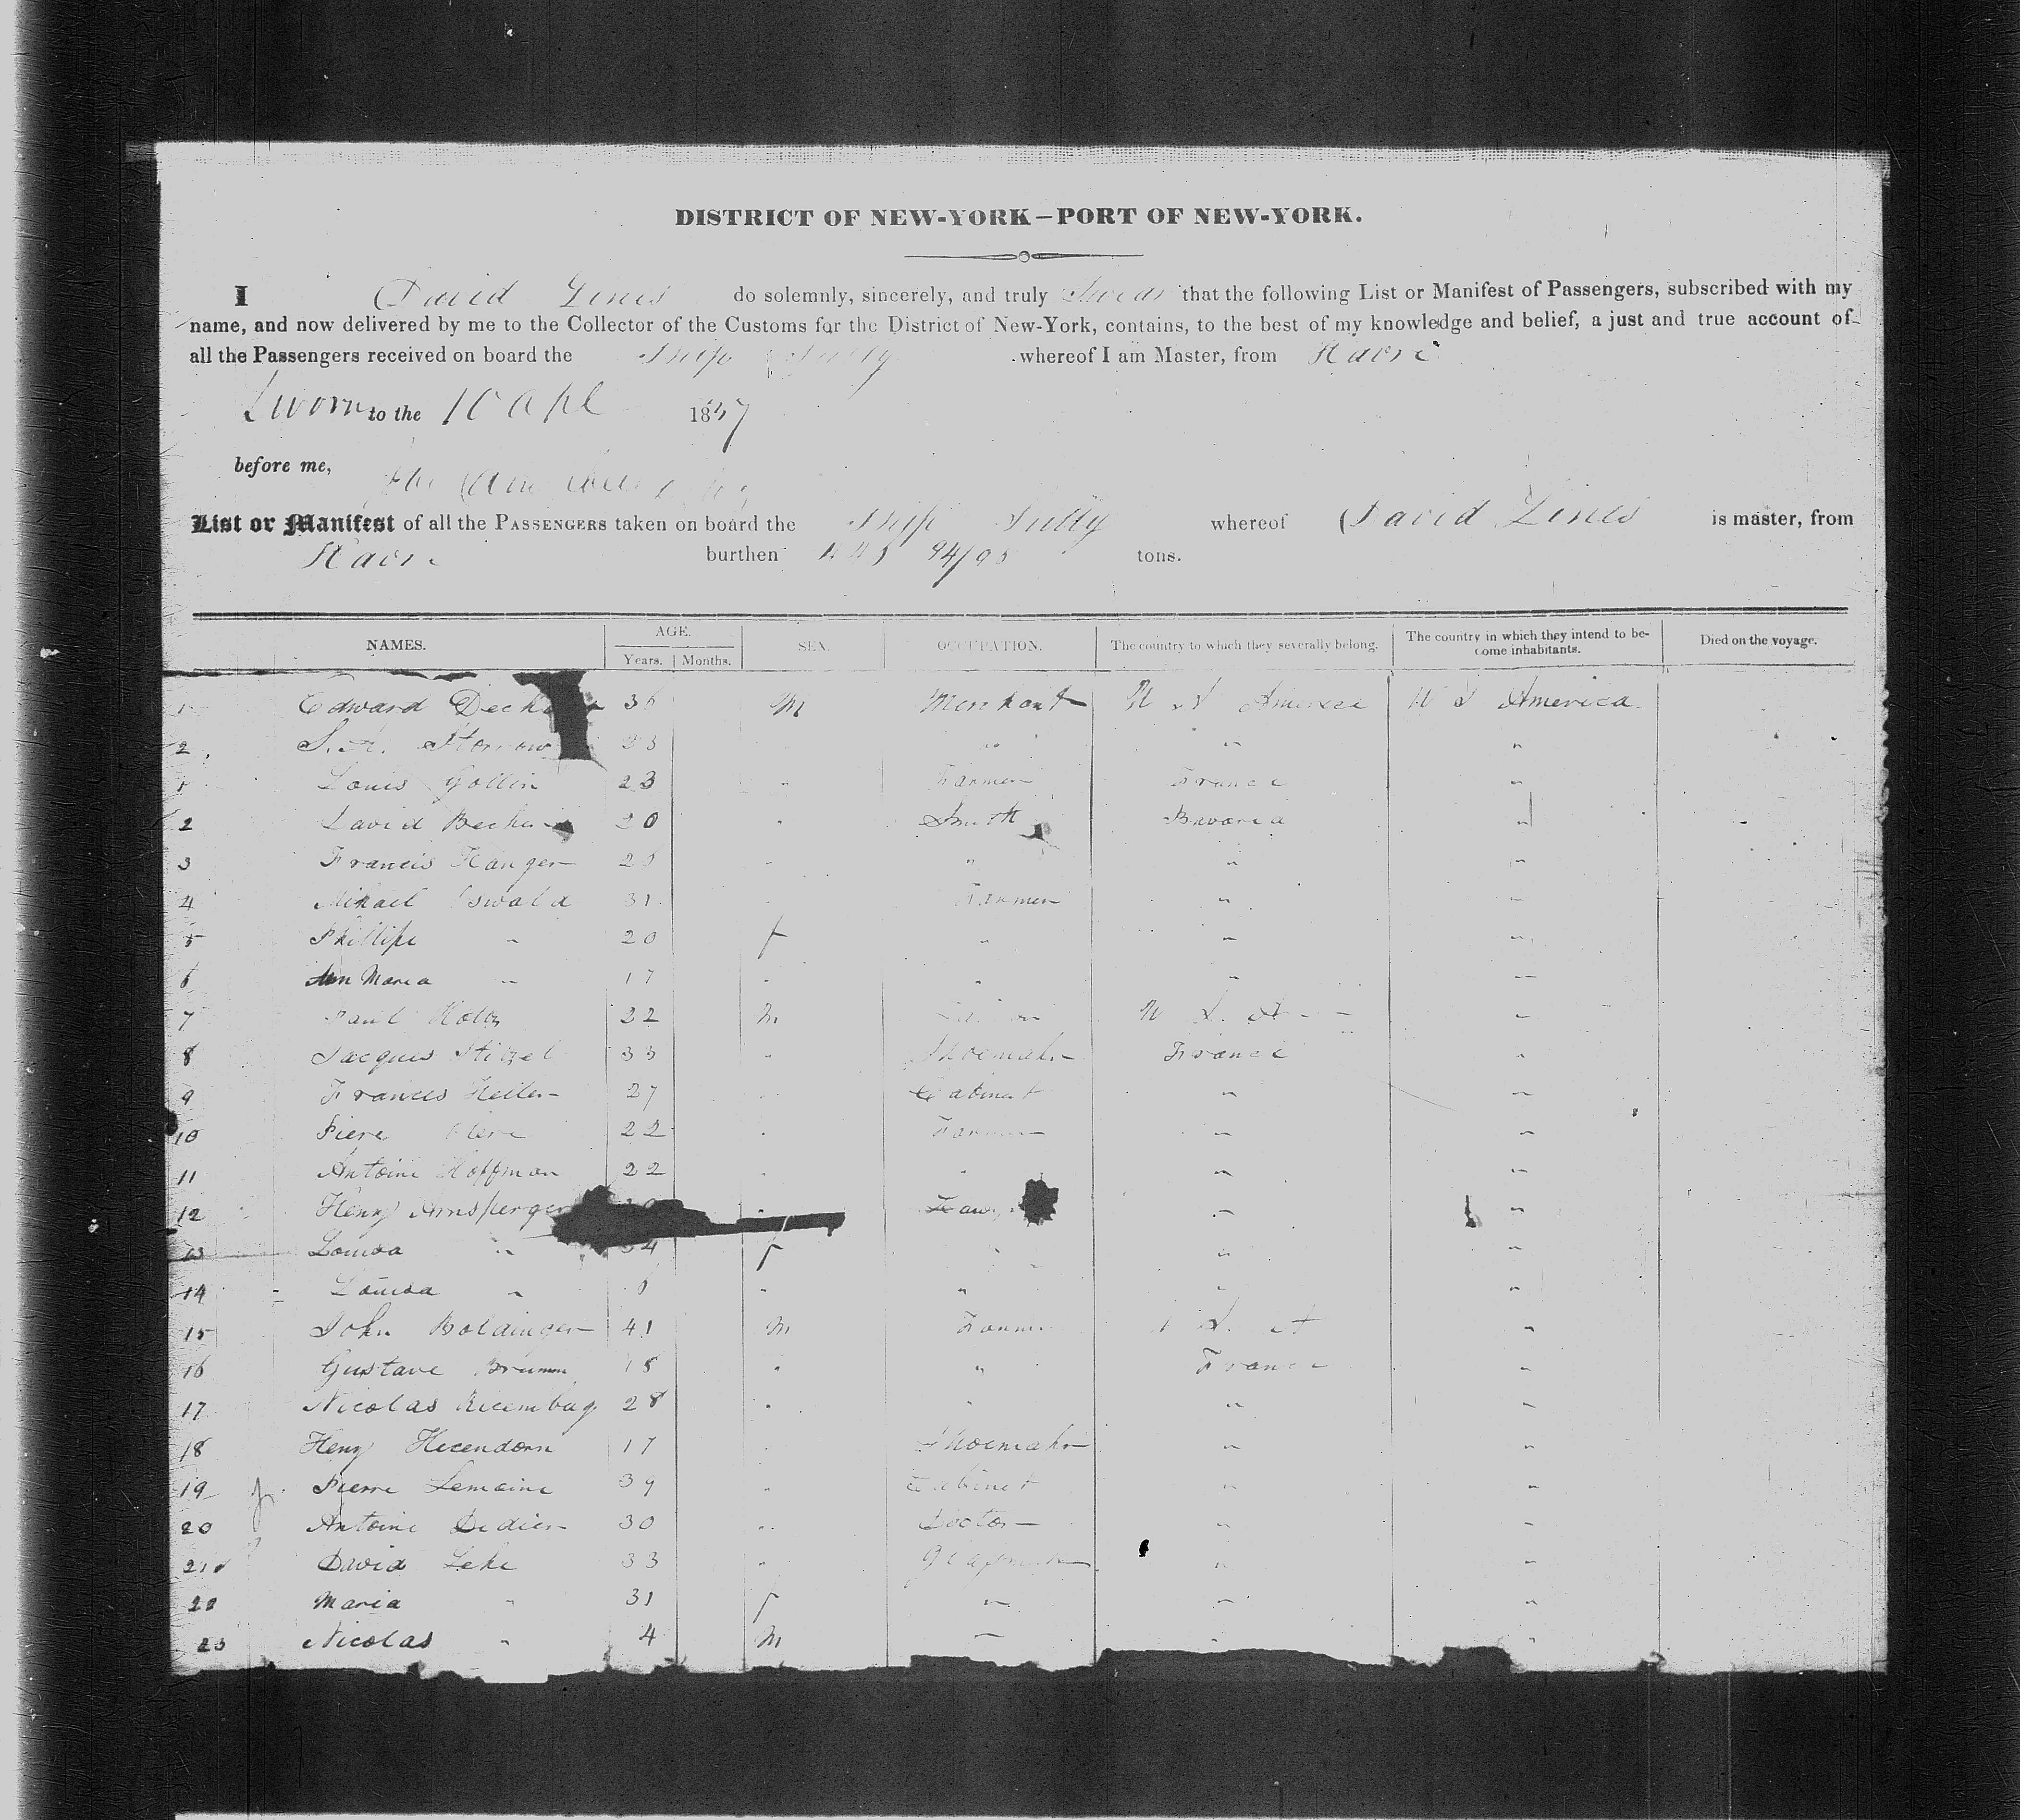 DISTRICT OF NEW-YORK–PORT OF NEW-YORK.
I David Lines do solemnly, sincerely, and truly Swear that the following List or Manifest of Passengers, subscribed with my
name, and now delivered by me to the Collector of the Customs for the District of New-York, contains, to the best of my knowledge and belief, a just and true account of
all the Passengers received on board the Ship Sully whereof I am Master, from Havre
Sworn to the 10 Apl 1837
before me,
List or Manifest of all the PASSENGERS taken on board the Ship Sully whereof David Lines is master, from
Havre burthen 94/95 tons.
NAMES. AGE. SEX. OCCUPATION. The country to which they severally belong. The country in which they intend to be-come inhabitants. Died on the voyage.
Years. Months.
1 Edward 36 M Merchant U S America U S America
2 S. " " "
1 Louis Gollin 23 " Farmer France "
2 David Becker 20 " Smith Bavaria "
3 Francis " " " "
4 Mikael Oswald 31 " Farmer " "
5 Phillipe " 20 f " " "
6 Ann Maria " 17 " " " "
7 Paul 22 M U S A "
8 Jacques Stitzel 33 " Shoemakr France "
9 Francis Heller 27 " Cabinet " "
10 Piere 22 " Farmer " "
11 Antoine Hoffman 22 " " " "
12 Heny Arnsperger " " "
13 Louisa " 34 f " " "
14 Louisa " " " " "
15 John Bolainger 41 M Farmer U S. A "
16 Gustave Brumm 18 " " France "
17 Nicolas Ricembag 28 " " " "
18 Heny Hecendorn 17 " Shoemakr " "
19 Pierre Lemaine 39 " Cabinet " "
20 Antoine Didier 30 " Doctor " "
21 David Leke 33 " " "
22 Maria " 31 f " " "
23 Nicolas " 4 M " " "